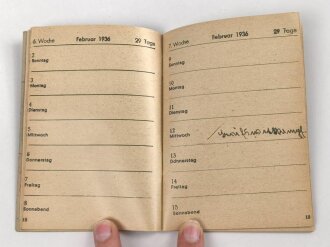 6. Woche Februar 1936 29 Tage
2
Sonntag
3
Montag
4
Dienstag
5
Mittwoch
6
Donnerstag
7
Freitag
8
Sonnabend
18
7. Woche Februar 1936 29 Tage
9
Sonntag
10
Montag
11
Dienstag
12
Mittwoch
13
Donnerstag
14
Freitag
15
Sonnabend
18